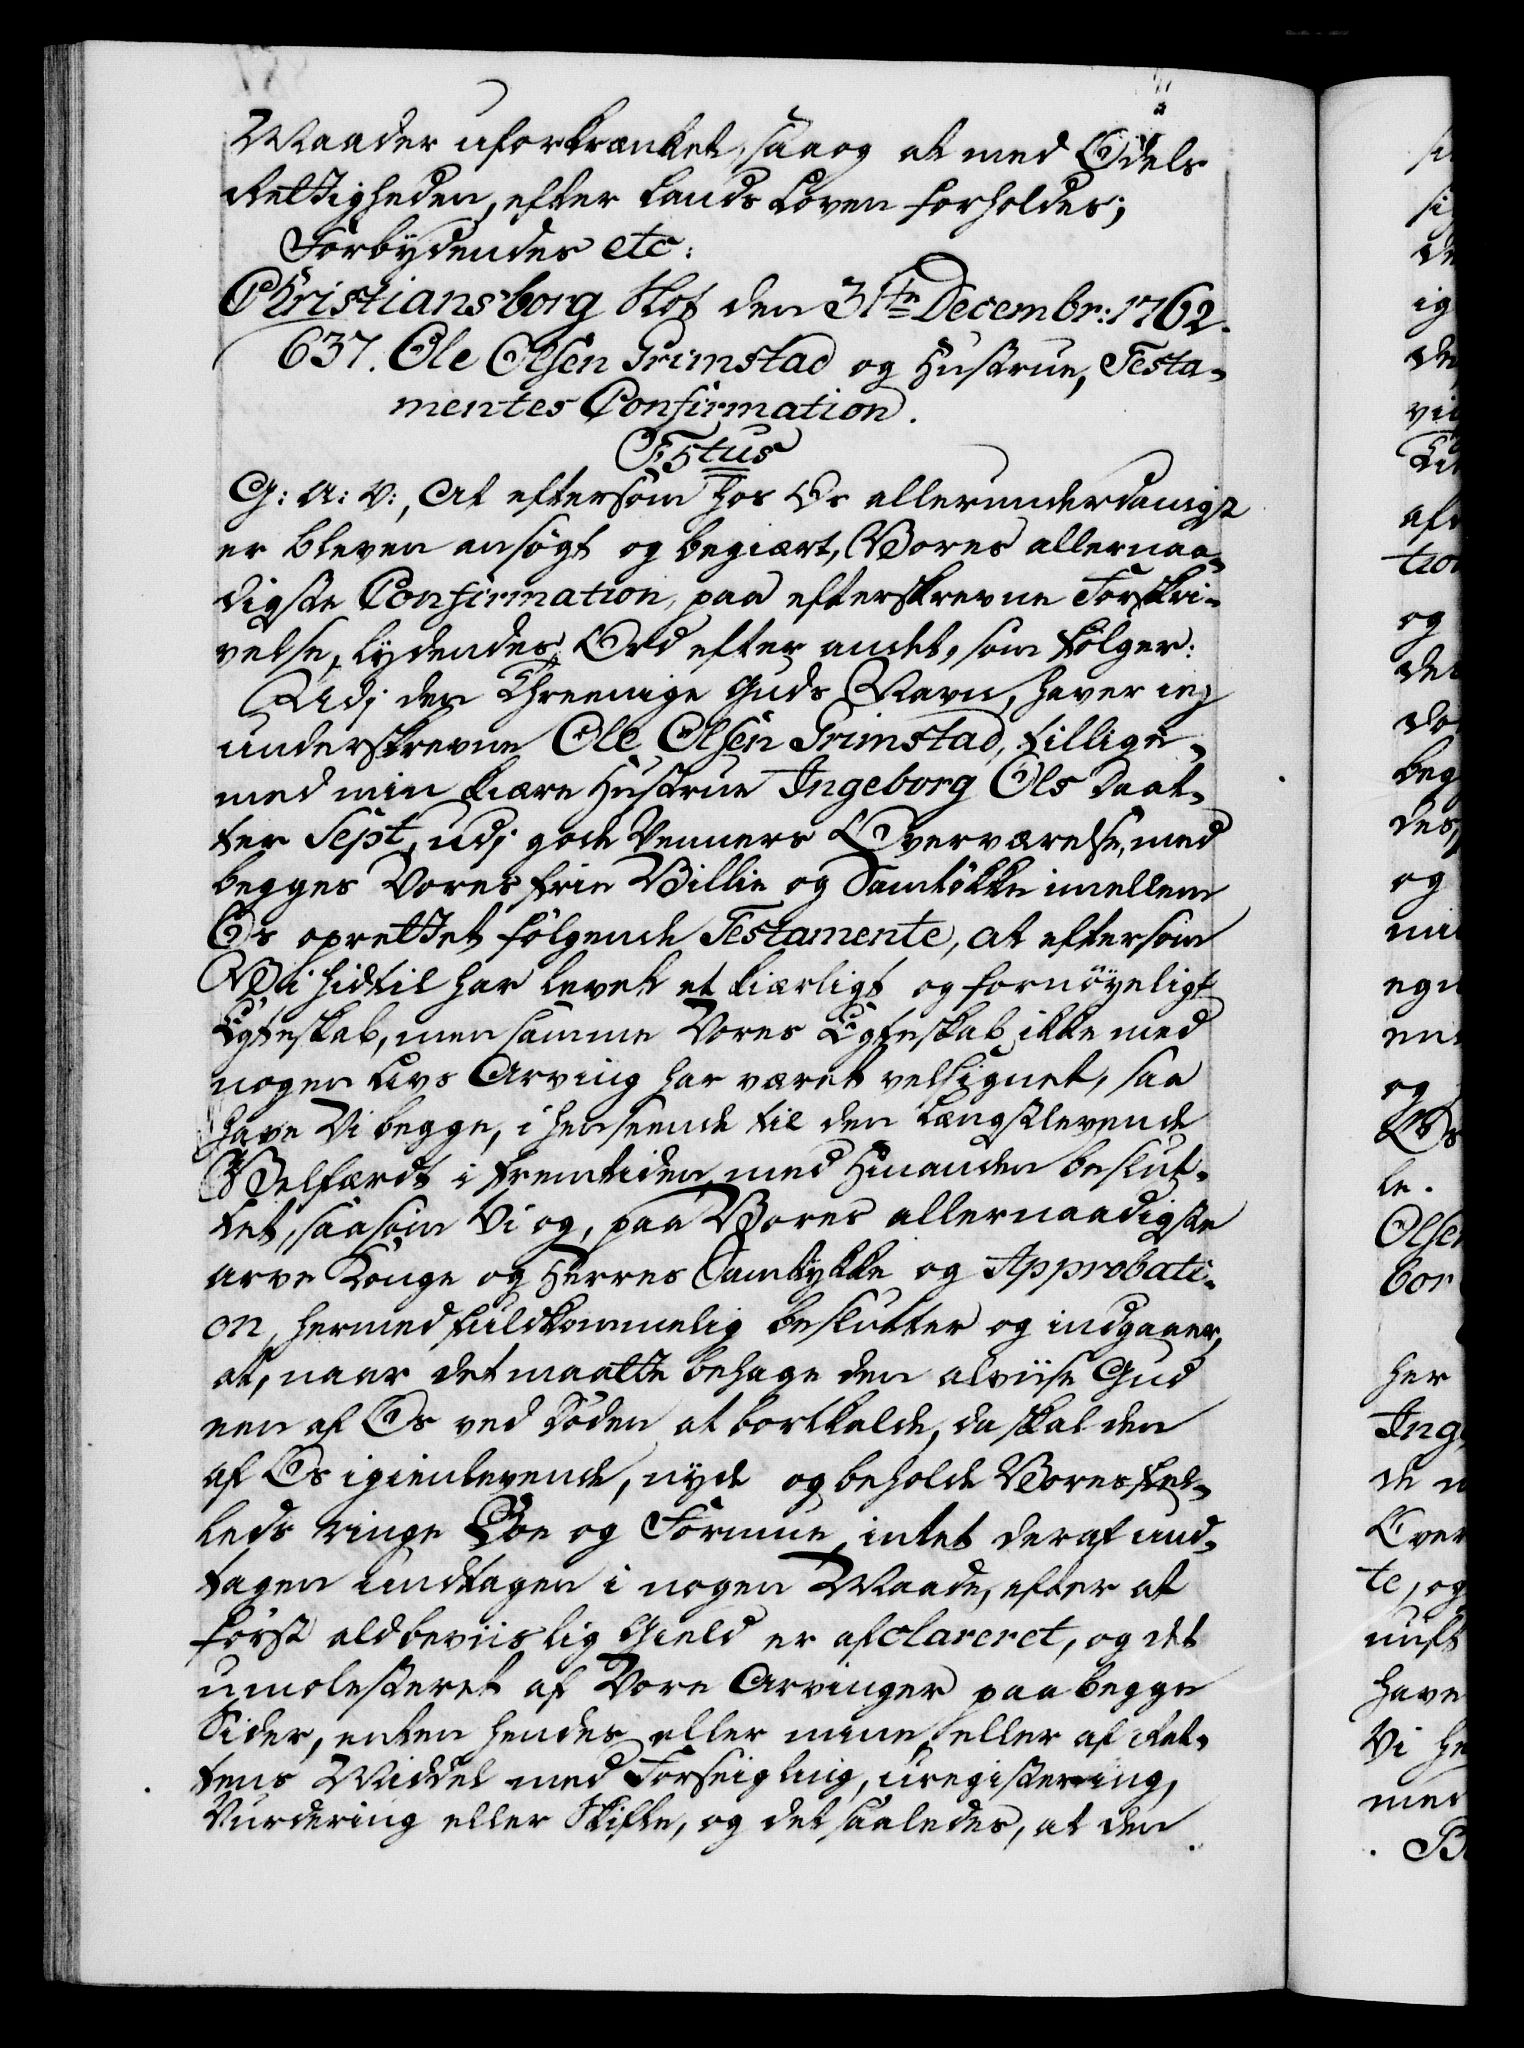 Maader uforkrænket, saa og at med Odels
Rettigheden, efter Lands Loven forholdes;
Forbydendes etc:
Christiansborg Slot den 31te Decembr: 1762.
637. Ole Olsen Grimstad og Hustrue, Testa-
mentes Confirmation.
F5tus
G: A: V:, At eftersom hos Os allerunderdanigst
er bleven ansøgt og begiært, Vores allernaa-
digste Confirmation, paa efterskrevne Forskri-
velse, lydendes Ord efter andet, som følger:
Udj den Threenige Guds Navn, haver ieg
underskrevne Ole Olsen Grimstad, tillige-
med min kiære Hustrue Ingeborg Ols Daat-
ter Sept, udj gode Venners Overværelse, med
begges Vores frie Villie og Samtøkke imellem
Os oprettet følgende Testamente, at eftersom
Vi hidtil har levet et kiærligt og fornøyeligt
Egteskab, men samme Vores Egteskab ikke med
nogen Livs Arving har været velsignet, saa
have Vi begge, i henseende til den Længstlevende
Velfærdt i fremtiden med hinanden beslut-
tet, saasom Vi og, paa Vores allernaadigste
arve Konge og Herres Samtykke og Approbati-
on, hermed fuldkommelig beslutter og indgaaer,
at, naar det maatte behage den alviise Gud
een af Os ved Døden at bortkalde, da skal den
af Os igienlevende, nyde og beholde Vores fel-
leds ringe Boe og Formue, intet deraf und-
tagen undtagen i nogen Maade, efter at
først ald beviislig Gield er afclareret, og det
umolesteret af Vore Arvinger paa begge
Sider, enten hendes eller mine, eller af Ret-
tens Middel med Forseigling, Uregistering,
Vurdering eller Skifte, og det saaledes, at den